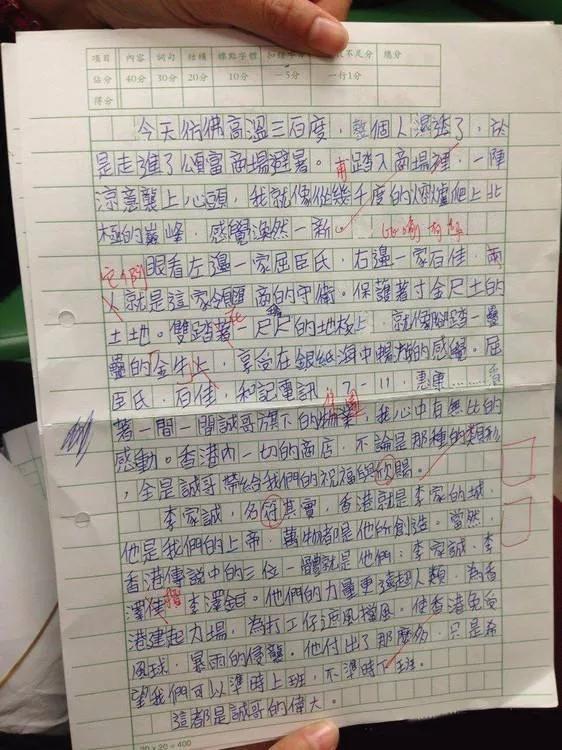 項目 內容 詞句 結構 標點字體 不足分 總分
佔分 40分 30分 20分 10分 —5分 一行1分
得分
今天仿佛高溫三百度，整個人濕透了，於
是走進了頌富商場避暑。甫踏入商場裡，一陣
涼意襲上心頭，我就像從幾千度的熔爐爬上北
極的巔峰，感覺渙然一新。
它們
眼看左邊一家屈臣氏，右邊一家百佳，兩
人就是這家領匯商的守衛。保護著寸金尺土的
土地。雙踏著一尺尺的地板上，就像腳踏一疊
疊的金牛上，享受在銀紙海中的感覺。屈
臣氏，百佳，和記電訊，7-11，惠康……看
著一間一間誠哥旗下的物業，我心中有無比的
感動。香港內一切的商店，不論是那種的類別
，全是誠哥帶給我們的祝福與欣賜。
李家誠，名符其實，香港就是李家的城，
他是我們的上帝，萬物都是他所創造。當然，
香港傳說中的三位一體就是他們：李家誠、李
澤佳、李澤鉅。他們的力量更遠超人類，為香
楷
港建起力場，為打工仔遮風擋風。使香港免受
風球，暴雨的侵襲。他付出了那麼多，只是希
望我們可以準時上班，不準時下班。
這都是誠哥的偉大。
20 × 20 = 400